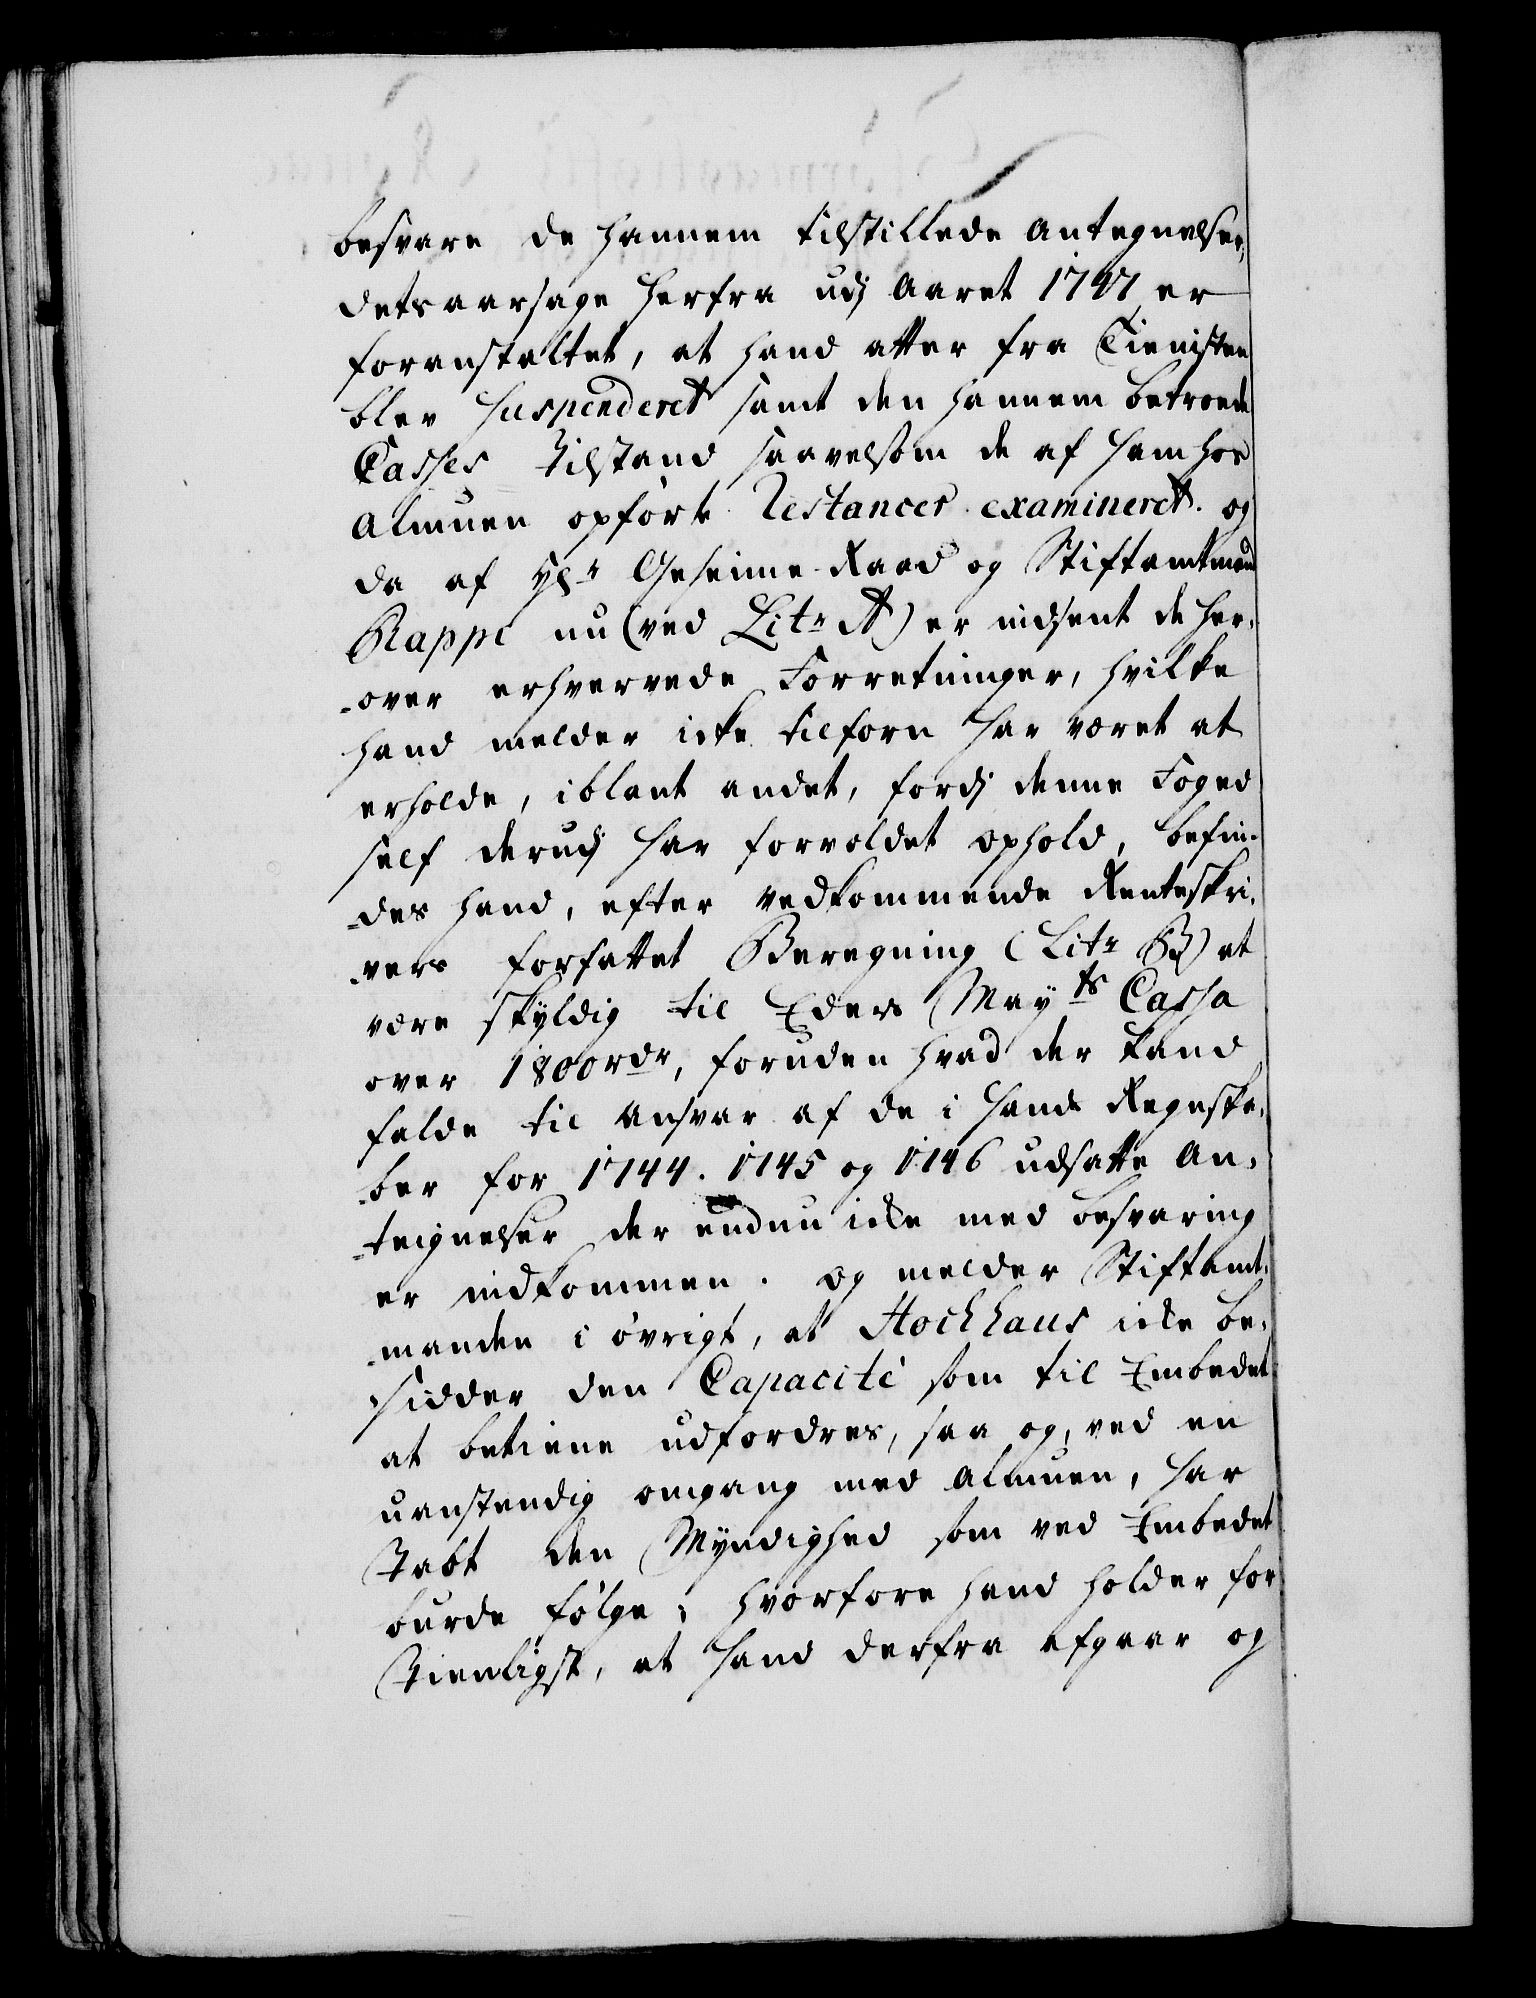 besvare de hannem tilstillede Antegnelser,
dets aarsage herfra udj Aaret 1747 er
foranstaltet, at hand atter fra Tienisten
blev suspenderet samt den hannem betroede
Casses tilstand saavelsom de af ham hos
Almuen opførte Restancer examineret. og
da af Hr Geheime-Raad og Stiftamtmand
Rappe nu (ved Litr A) er indsent de her-
-over erhvervede Forretninger, hvilke
hand melder icke tilforn har været at
erholde, iblant andet, fordj denne Foged
self derudj har forvoldet ophold, befin-
-des hand, efter vedkommende Renteskri-
-vers forfattet Beregning (Litr B) at
være skyldig til Eders Mayts Cassa
over 1800 rdr, foruden hvad der kand
falde til Ansvar af de i hands Regnska-
-ber for 1744. 1745 og 1746 udsatte An-
-teignelser der endnu icke med besvaring
er indkommen. og melder Stiftamt-
-manden i øvrigt, at Hockhaus icke be-
sidder den Capacité som til Embedet
at betiene udfordres, saa og, ved en
uanstendig omgang med Almuen, har
Tabt den Myndighed som ved Embedet
burde følge; hvorfore hand holder for
Tienligst, at hand derfra afgaar og